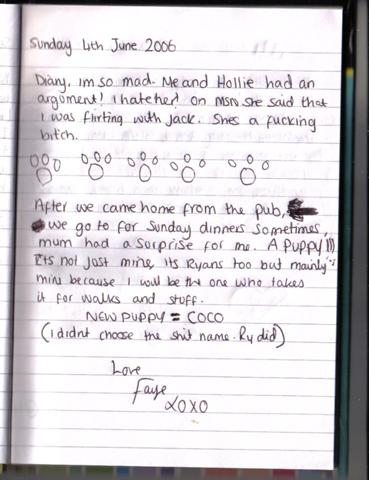 Sunday 4th June 2006
Diary, im so mad. Me and Hollie had an
argument! I hate her! On msn she said that
I was flirting with Jack. Shes a fucking
bitch.
After we came home from the pub,
we go to for Sunday dinners sometimes,
mum had a surprise for me. A Puppy!!!
Its not just mine, its Ryans too but mainly
mine because I will be the one who takes
it for walks and stuff.
NEW PUPPY = COCO
(I didnt choose the shit name. Ry did)
Love
Faye
XOXO